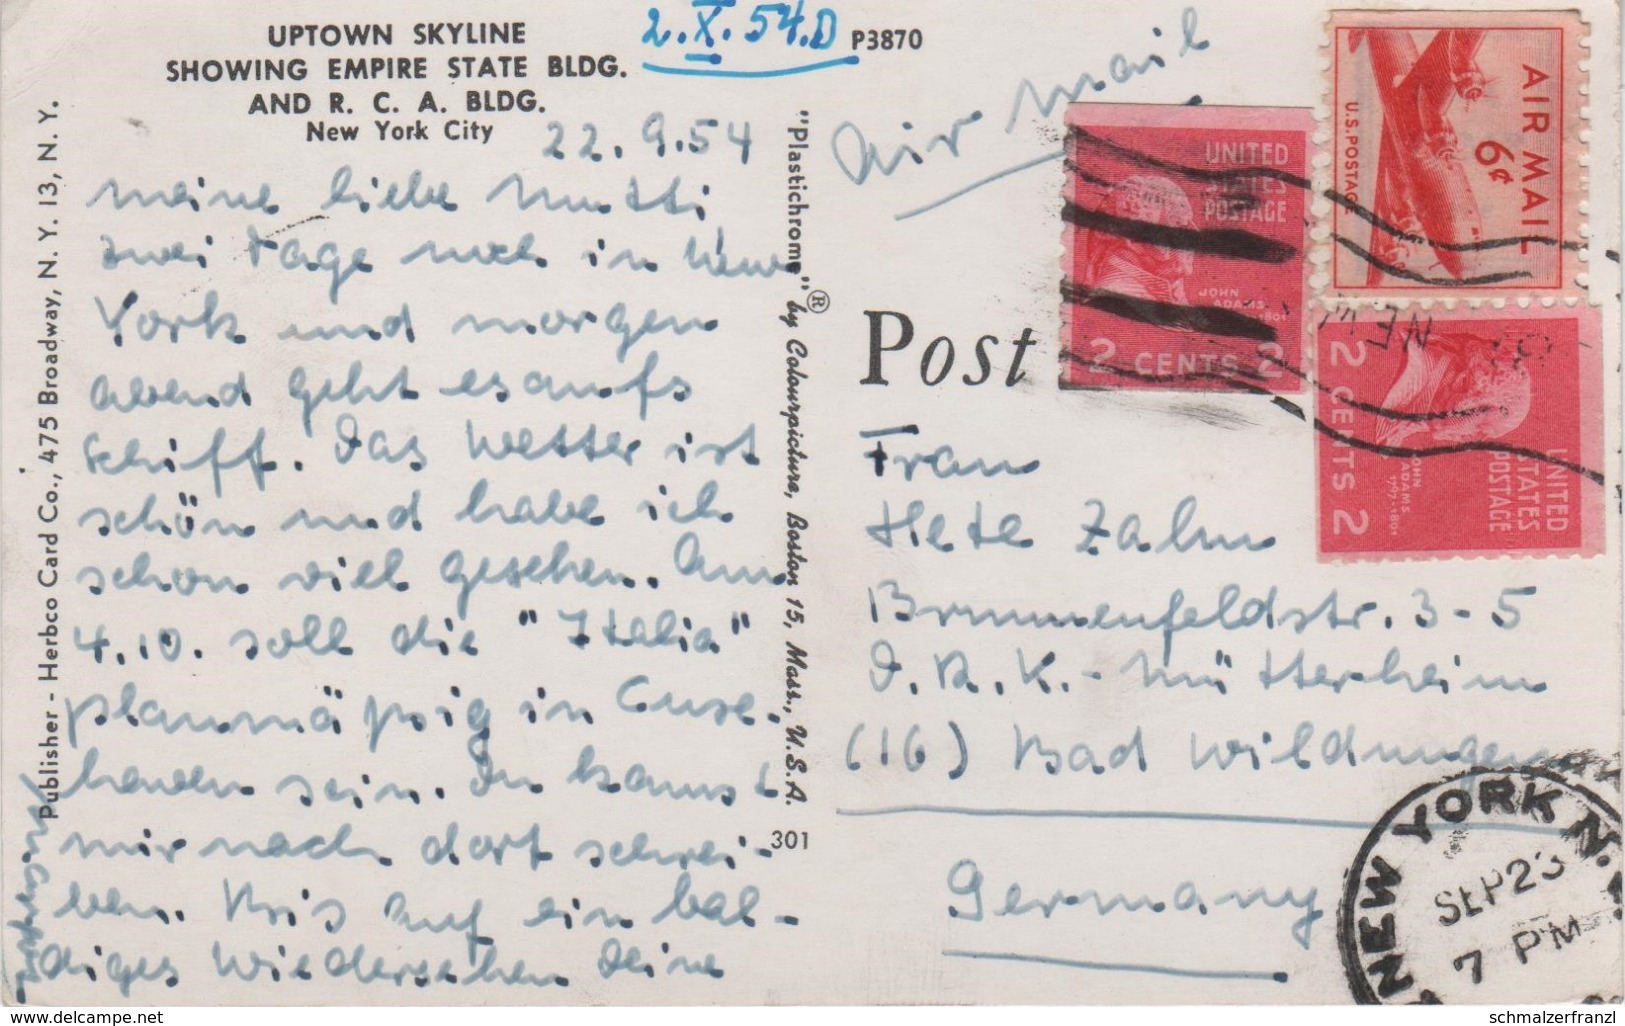 UPTOWN SKYLINE
SHOWING EMPIRE STATE BLDG.
AND R. C. A. BLDG.
New York City
2.X.54.D
P3870
22.9.54
meine liebe Mutti
zwei Tage noch in New
York und morgen
abend geht es aufs
Schiff. Das Wetter ist
schön und habe ich
schon viel gesehen. Am
4.10. soll die "Italia"
planmäßig in Cuxe-
haven sein. Du kannst
mir nach dort schrei-
ben. Bis auf ein bal-
diges Wiedersehen Deine
Publisher - Herbco Card Co., 475 Broadway, N. Y. 13, N. Y.
"Plastichrome"® by Colourpicture, Boston 15, Mass., U.S.A.
301
Air Mail
Post
AIR MAIL
6¢
U.S. POSTAGE
UNITED
STATES
POSTAGE
JOHN
ADAMS
2 CENTS 2
UNITED
STATES
POSTAGE
JOHN
ADAMS
1797-1801
2 CENTS 2
Frau
Hete Zahn
Brunnenfeldstr. 3-5
D.R.K.-Mütterheim
(16) Bad Wildungen
Germany
NEW YORK N.
SEP 23
7 PM
www.delcampe.net
schmalzerfranzl